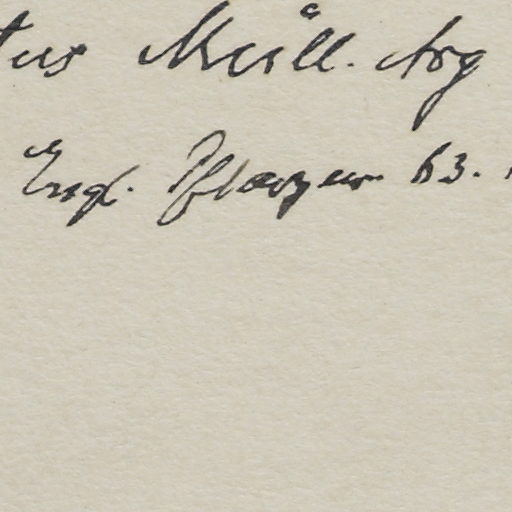 tus Müll. Arg
Engl. Pflanzenr. 63.